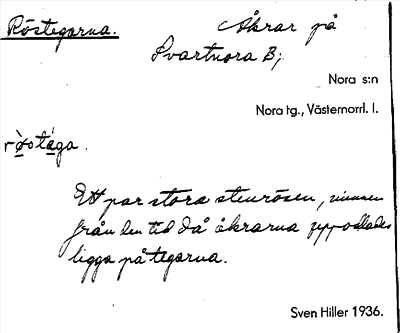 Röstegarna.
Åkrar på
Svartnora B;
Nora s:n
Nora tg., Västernorrl. l.
Ett par stora stenrösen, minnen
från den tid då åkrarna uppodlades
ligga på tegarna.
Sven Hiller 1936.